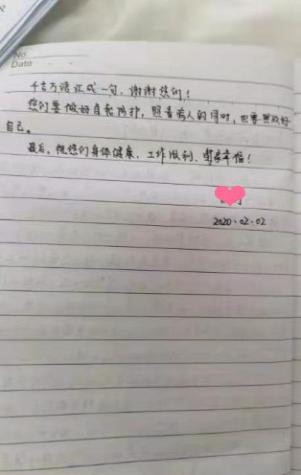 No.
Date
千言万语汇成一句，谢谢您们！
您们要做好自我防护，照看病人的同时，也要照顾好
自己。
最后，祝您们身体健康，工作顺利，阖家幸福！
2020.02.02